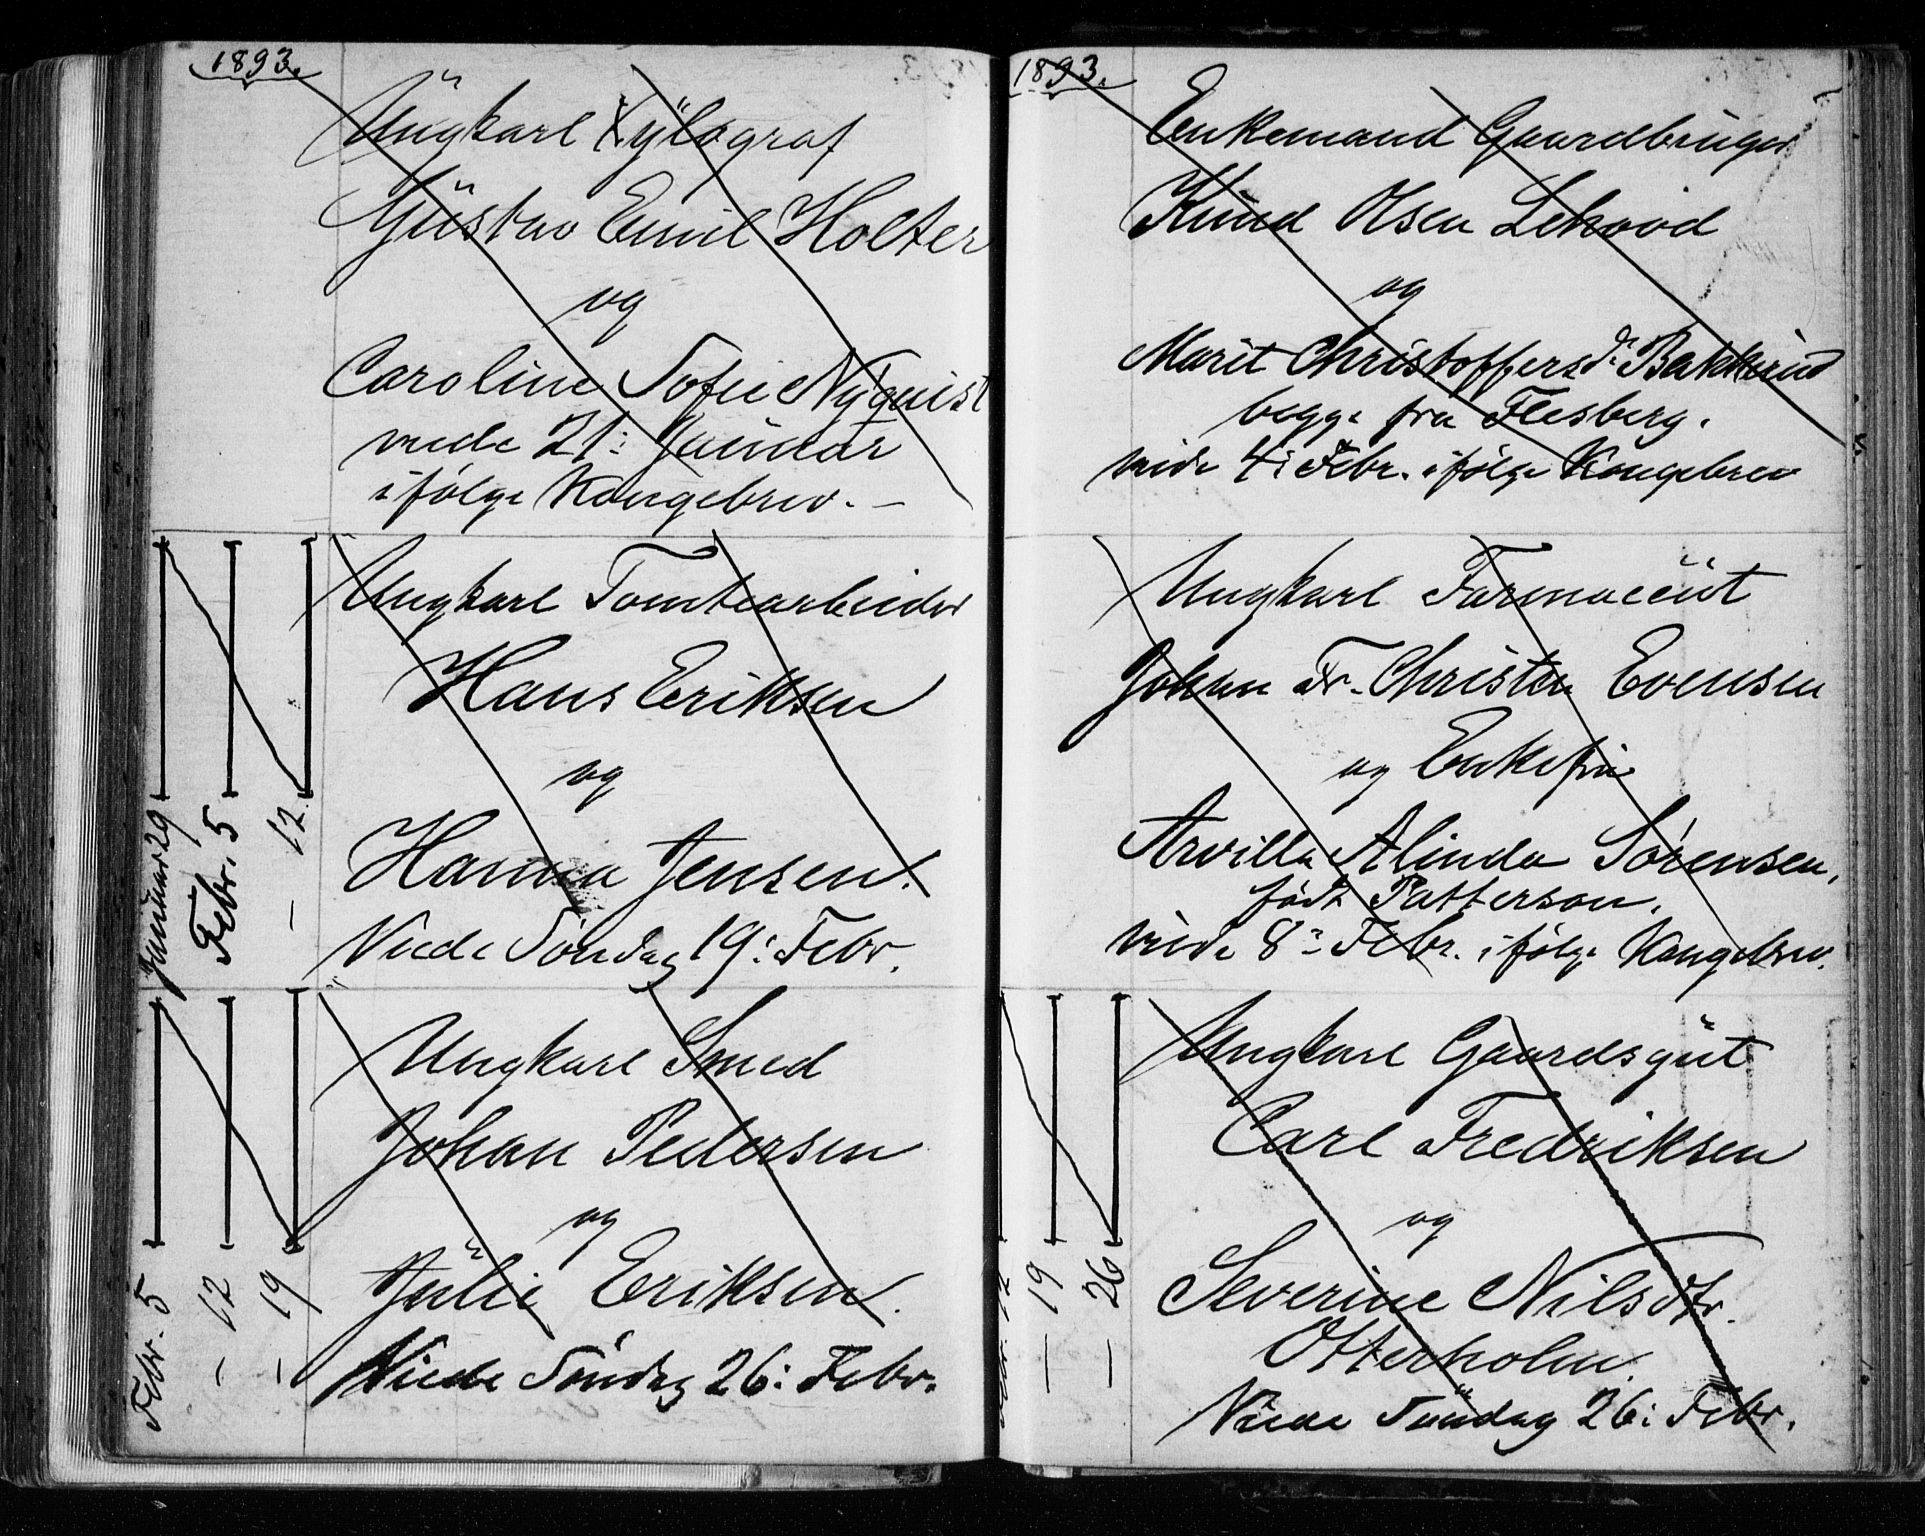 1893.
Ungkarl Xylograf
Gustav Emil Holter
og
Caroline Sofie Nyquist
viede 21: Januar
ifølge Kongebrev. –
Januar 29
Febr. 5
— 12
Ungkarl Tomtearbeider
Hans Eriksen
og
Hanna Jensen.
Viede Söndag 19: Febr.
Febr. 5
— 12
— 19
Ungkarl Smed
Johan Pedersen
og
Julie Eriksen.
Viede Söndag 26: Febr.
1893.
Enkemand Gaardbruger
Knud Olsen Lehovd
og
Marit Christoffersd. Bakkerud
begge fra Flesberg.
viede 4: Febr. ifølge Kongebrev
Ungkarl Farmaceut
Johan Fr. Christen Evensen
og Enkefru
Arvilla Alinda Sörensen,
født Patterson.
viede 8: Febr. ifølge Kongebrev.
12
— 19
— 26
Ungkarl Gaardsgut
Carl Fredriksen
og
Severine Nilsdtr.
Otterholm.
Viede Söndag 26: Febr.